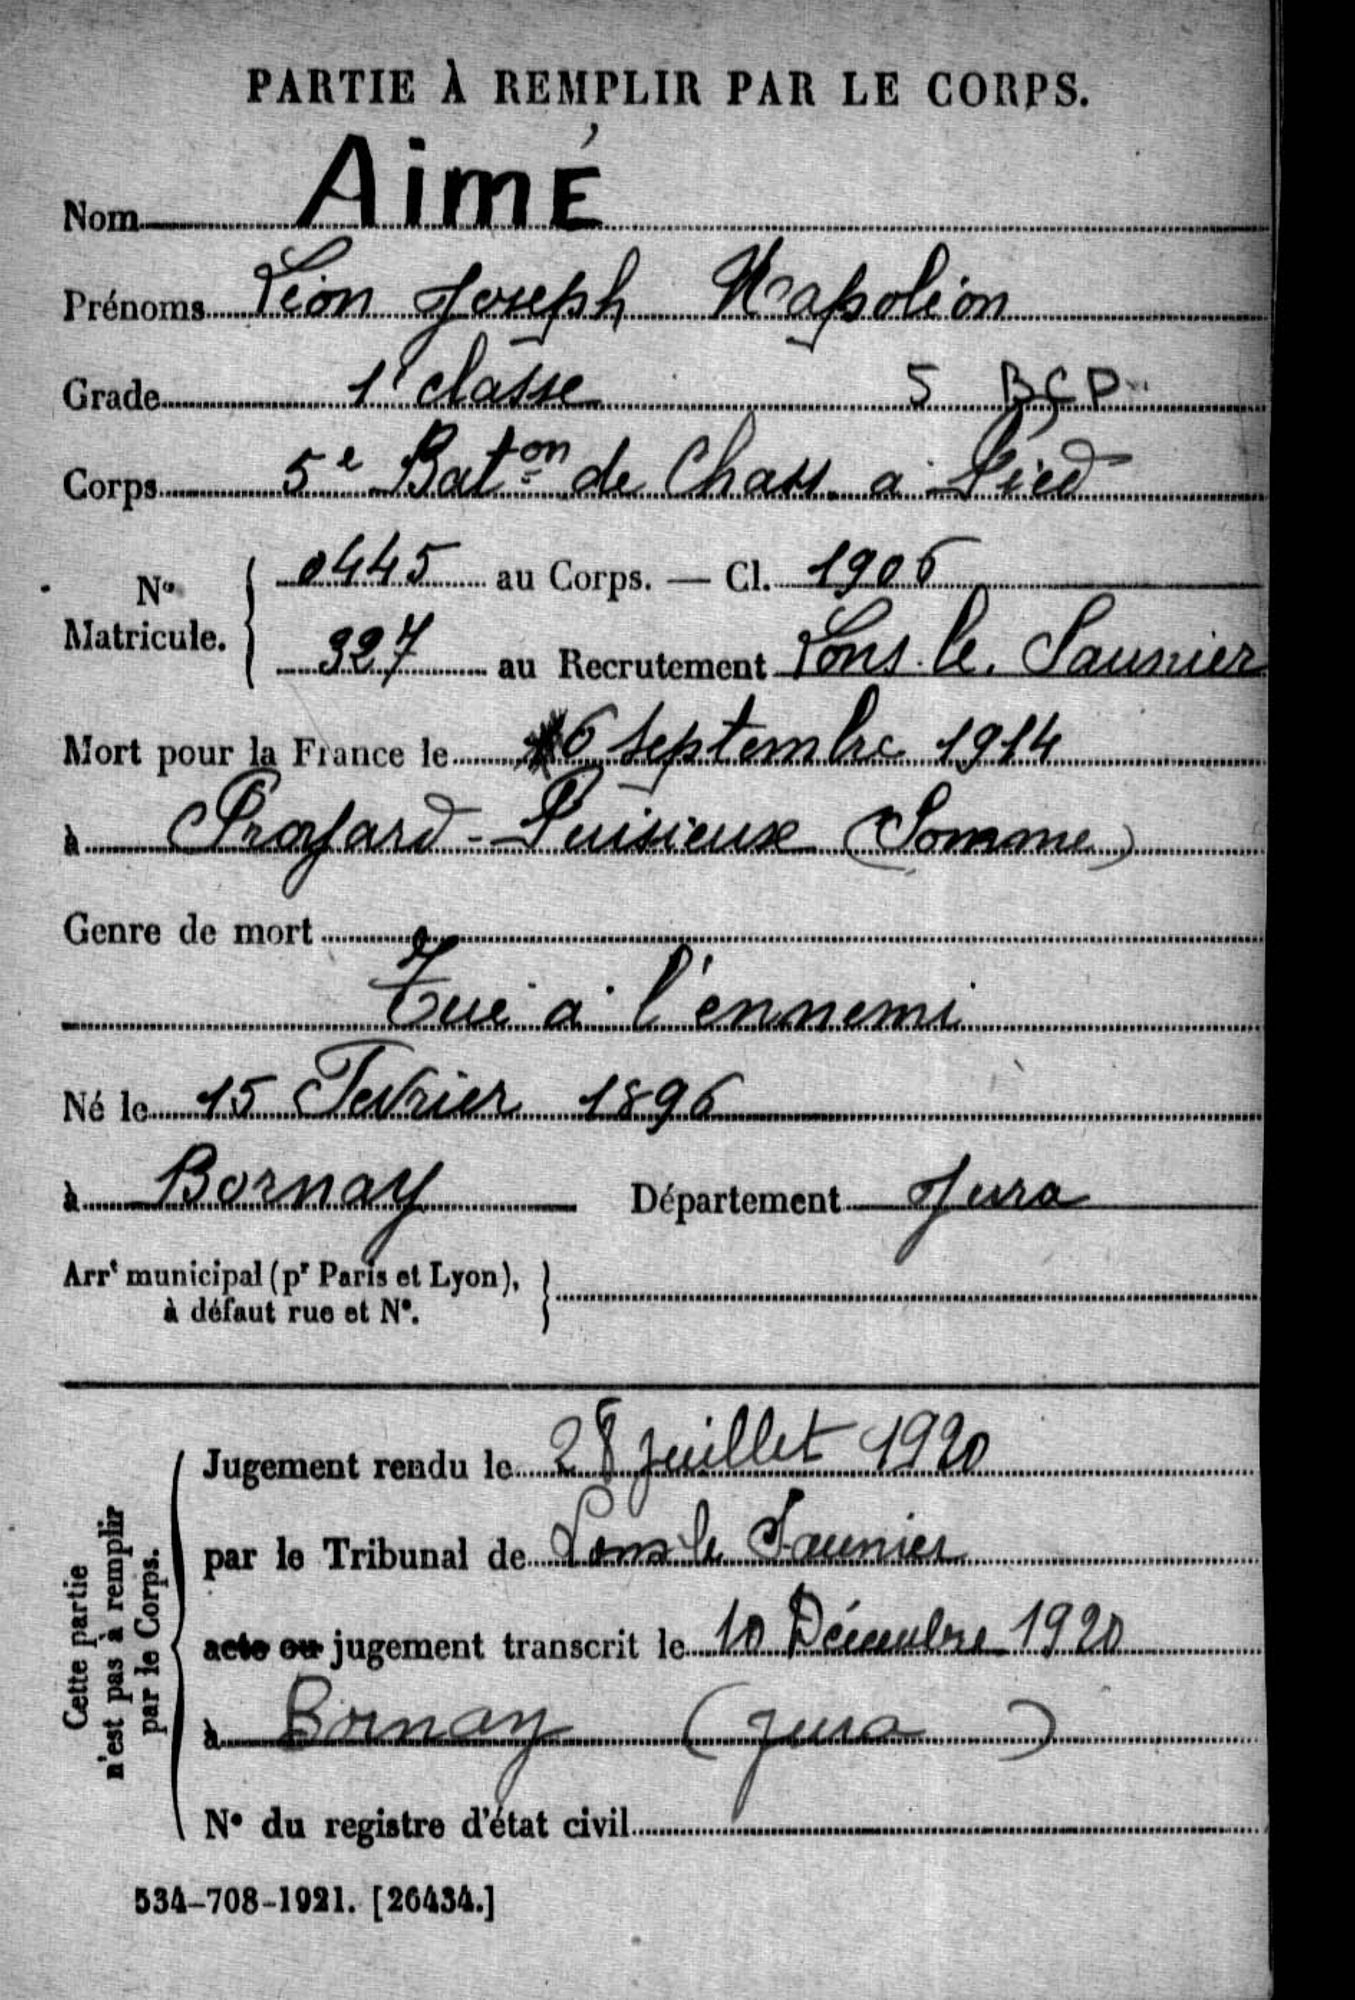 PARTIE À REMPLIR PAR LE CORPS.
Nom AimÉ
Prénoms Léon Joseph Napoléon
Grade 1e classe 5 BCP
Corps 5e Baton de Chass. a Pied
Nº Matricule. 0445 au Corps. — Cl. 1906
327 au Recrutement Lons. le. Saunier
Mort pour la France le 6 septembre 1914
à Proyard - Puisieux (Somme)
Genre de mort
Tué à l'ennemi
Né le 15 Fevrier 1896
à Bornay Département Jura
Arrt municipal (pr Paris et Lyon),
à défaut rue et Nº.
Cette partie
n'est pas à remplir
par le Corps.
Jugement rendu le 28 juillet 1920
par le Tribunal de Lons le Saunier
acte ou jugement transcrit le 10 Décembre 1920
à Bornay (Jura)
Nº du registre d'état civil
534-708-1921. [26434.]